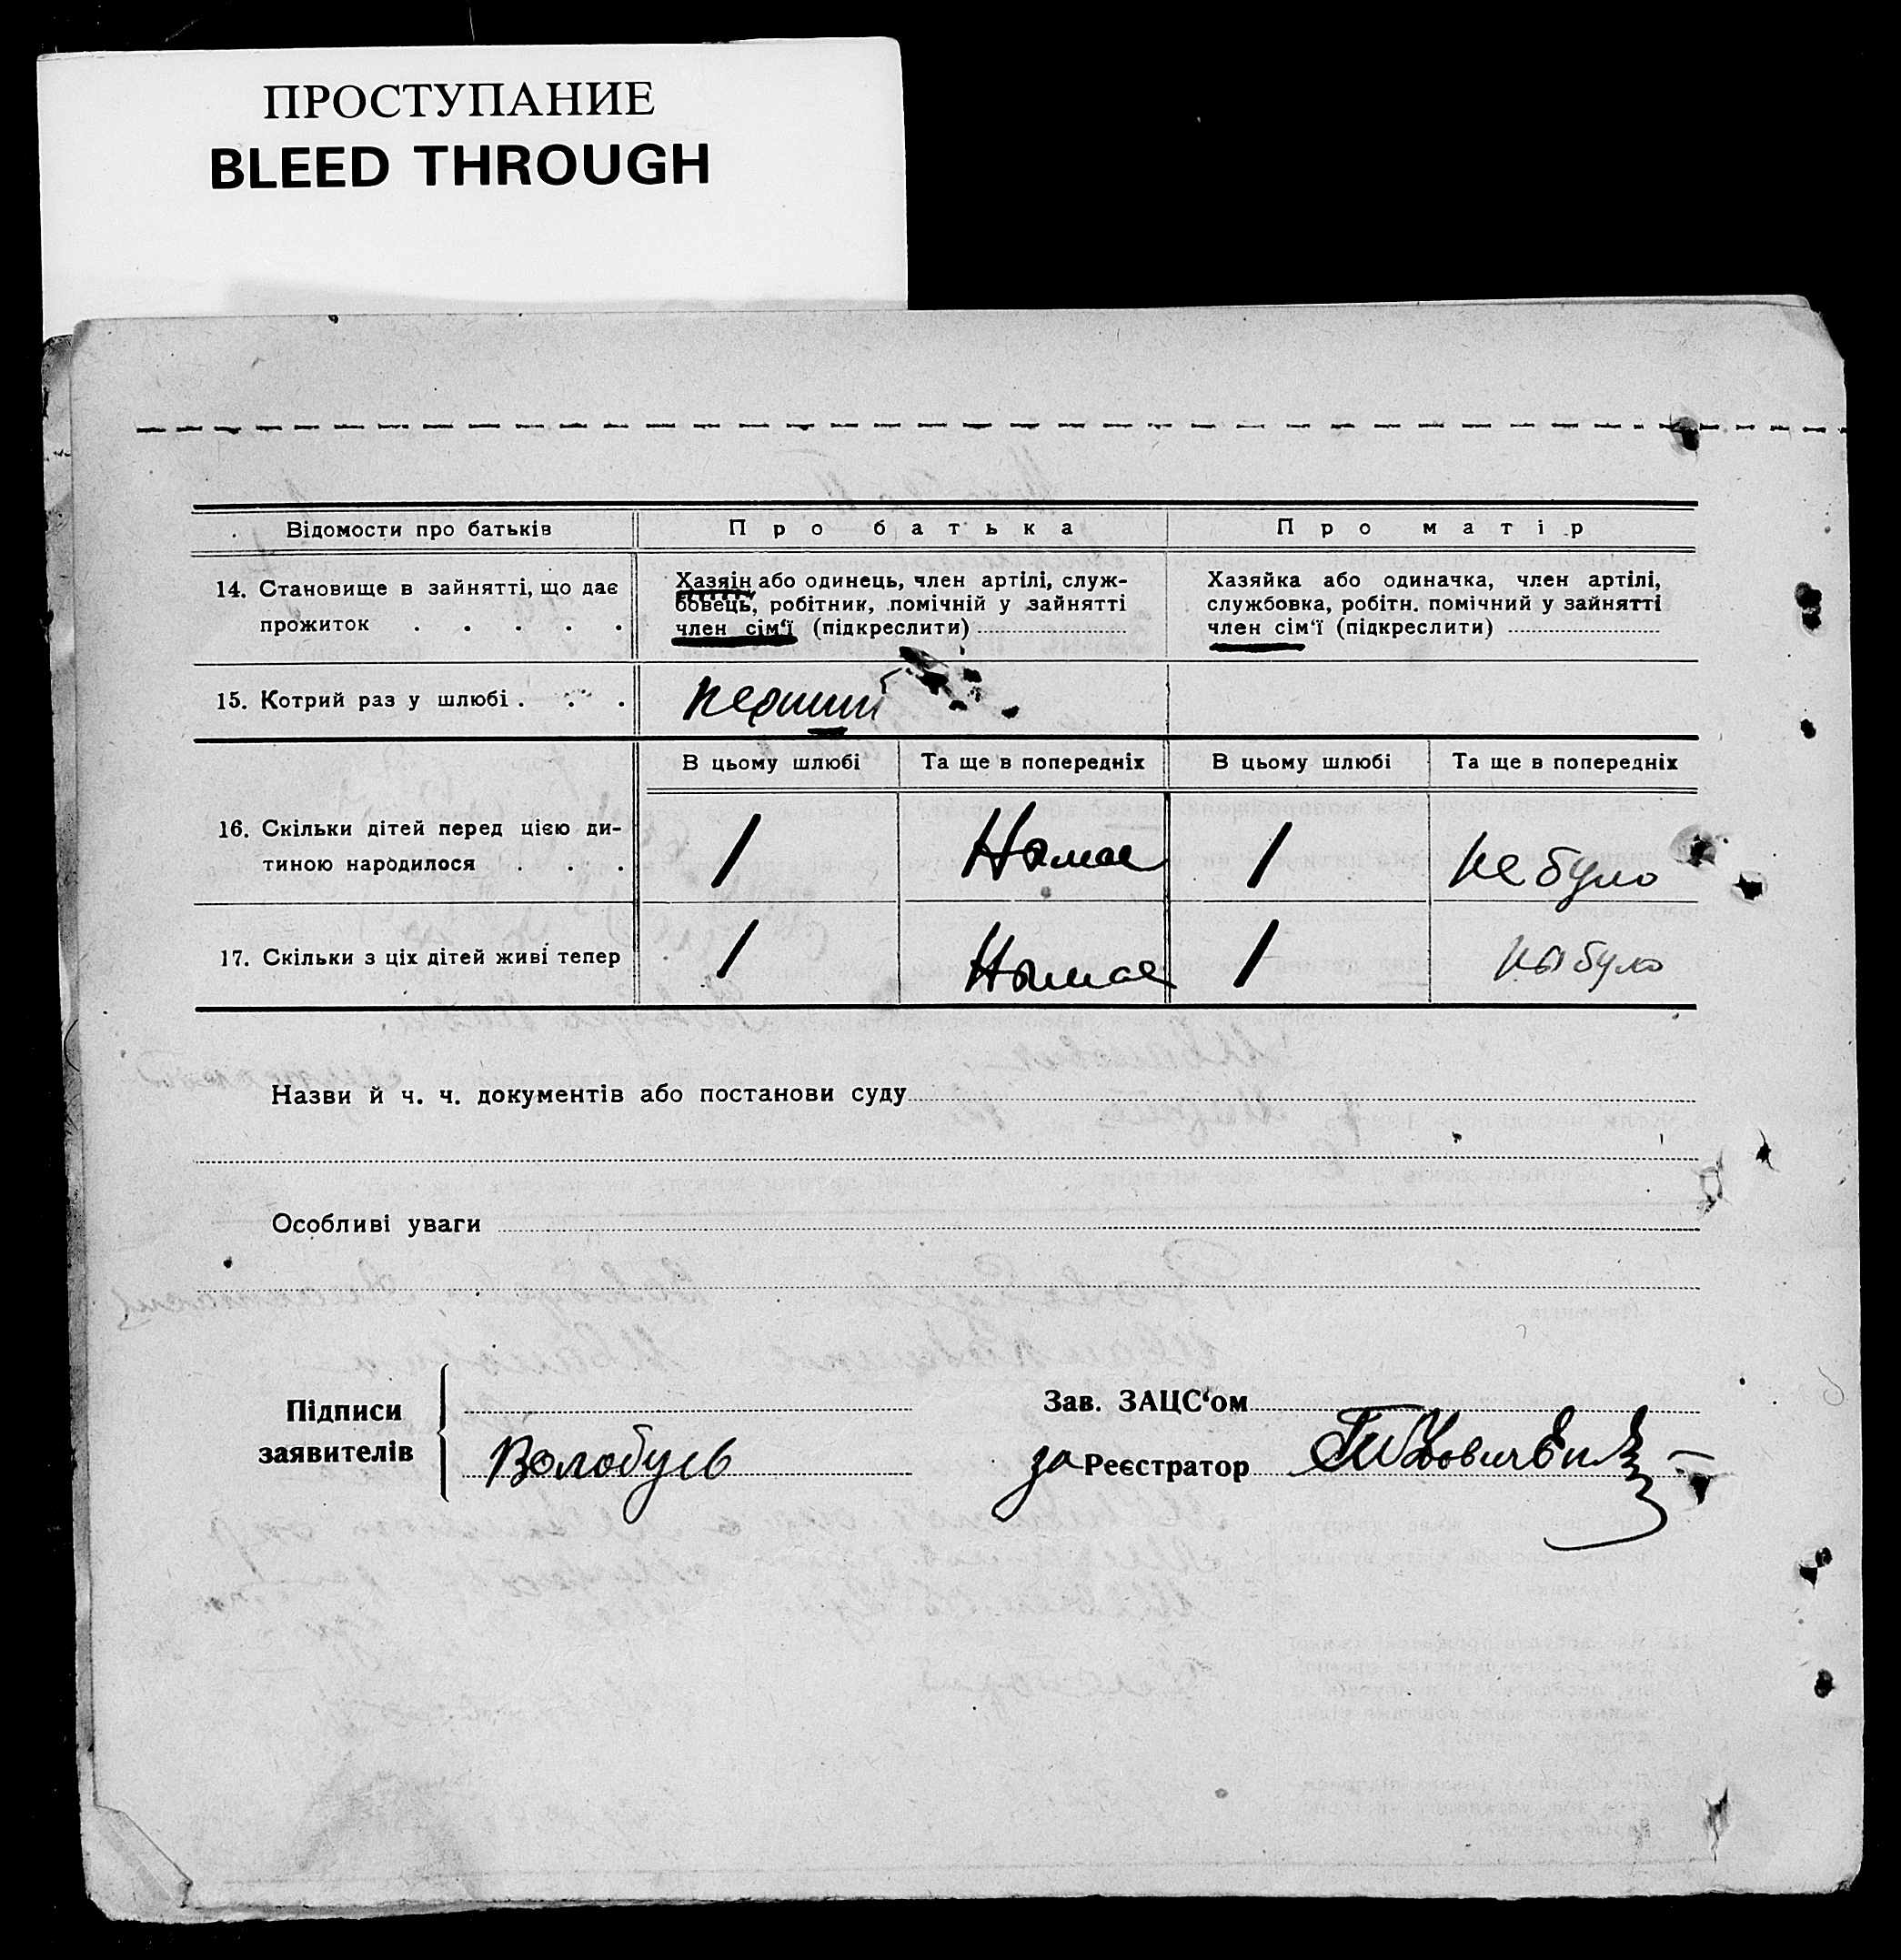 ПРОСТУПАНИЕ
BLEED THROUGH
Відомости про батьків
Про батька
Про матір
14. Становище в зайнятті, що дає
прожиток . . . . .
Хазяїн або одинець, член артілі, служ-
бовець, робітник, помічній у зайнятті
член сім‘ї (підкреслити)
Хазяйка або одиначка, член артілі,
службовка, робітн. помічний у зайнятті
член сім‘ї (підкреслити)
15. Котрий раз у шлюбі . . .
перший
В цьому шлюбі
Та ще в попередніх
В цьому шлюбі
Та ще в попередніх
16. Скільки дітей перед цією ди-
тиною народилося . . .
1
Немає
1
не було
17. Скільки з ціх дітей живі тепер
1
Немає
1
не було
Назви й ч. ч. документів або постанови суду
Особливі уваги
Підписи
заявителів
Волобуєв
Зав. ЗАЦС‘ом
за Реєстратор